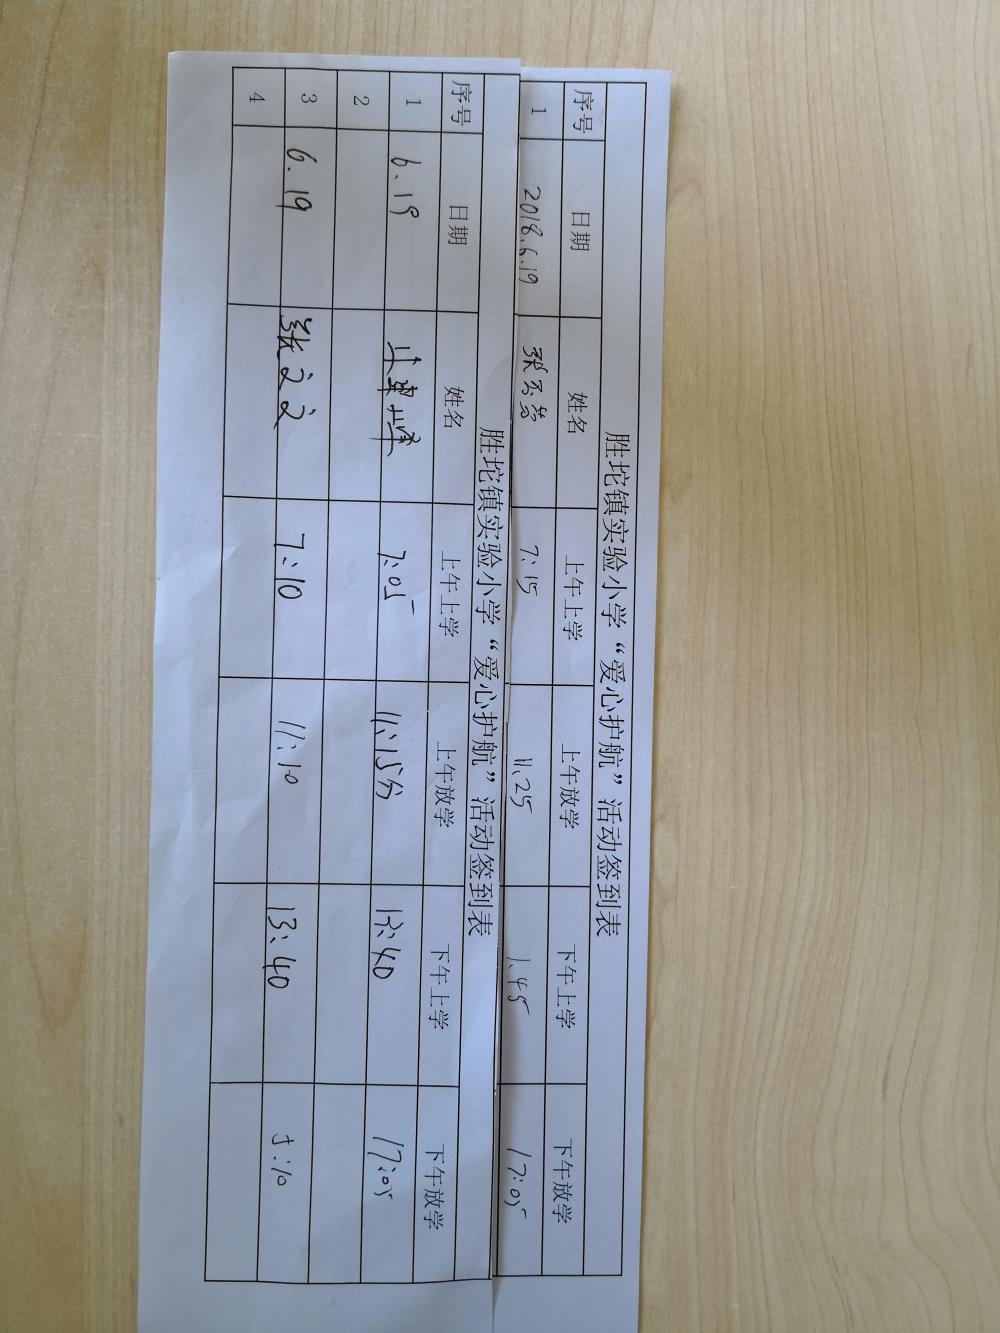 胜坨镇实验小学“爱心护航”活动签到表
序号 日期 姓名 上午上学 上午放学 下午上学 下午放学
1 2018.6.19 张 7:15 11.25 1.45 17:05
胜坨镇实验小学“爱心护航”活动签到表
序号 日期 姓名 上午上学 上午放学 下午上学 下午放学
1 6.19 7:05 11:15分 17:05
2
3 6.19 张文文 7:10 11:10 13:40 5:10
4